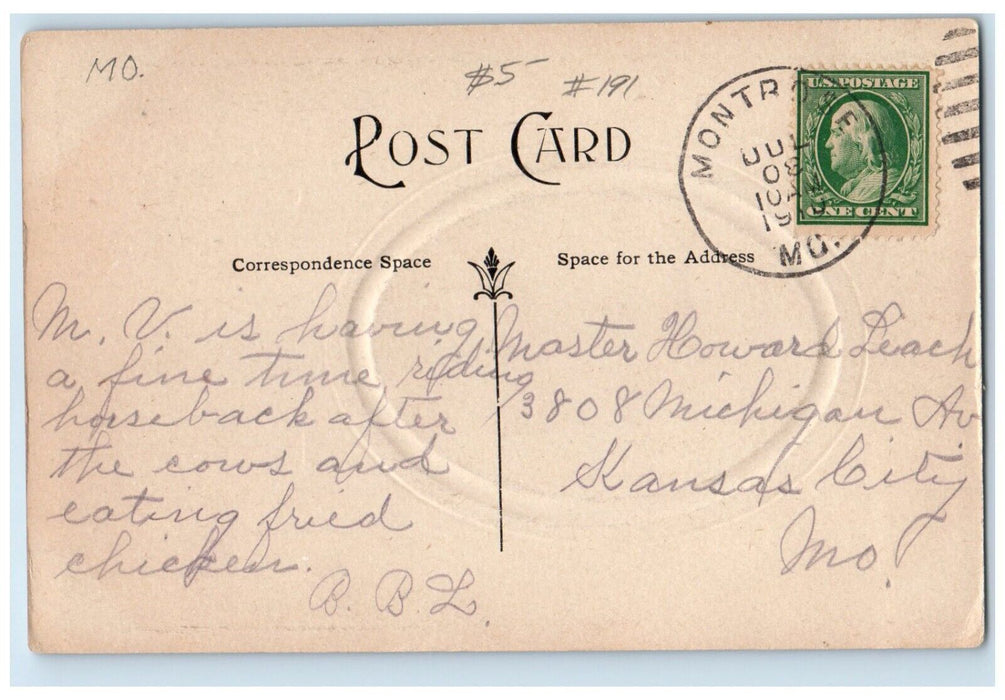 MO.
$5 #191
POST CARD
U.S. POSTAGE
ONE CENT
MONTROSE
JUL
08
10 AM
MO.
Correspondence Space
Space for the Address
M. V. is having
a fine time riding
horseback after
the cows and
eating fried
chicken.
B. B. L.
Master Howard Leach
3808 Michigan Av
Kansas City
Mo.